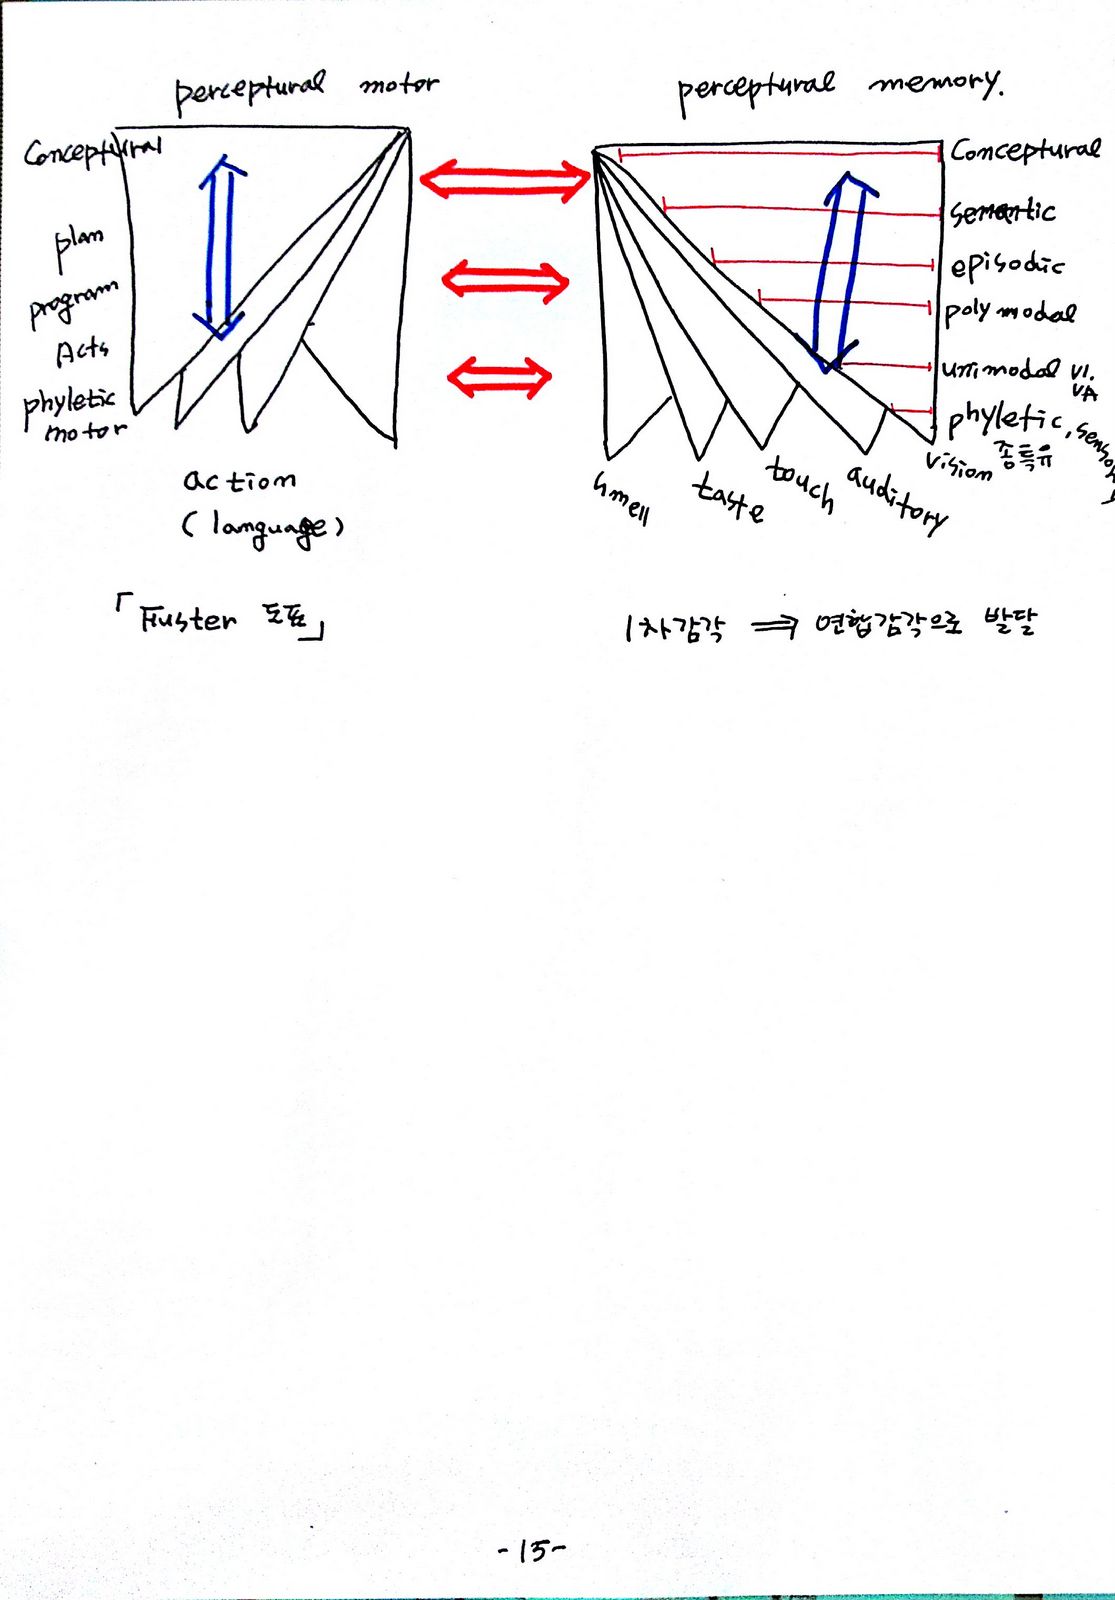 perceptural motor
Conceptural
plan
program
Acts
phyletic
motor
action
(language)
「Fuster 도표」
perceptural memory.
Conceptural
semantic
episodic
poly modal
unimodal V1.
VA
phyletic, sensory
종특유
smell
taste
touch
auditory
vision
1차감각 ⇒ 연합감각으로 발달
-15-